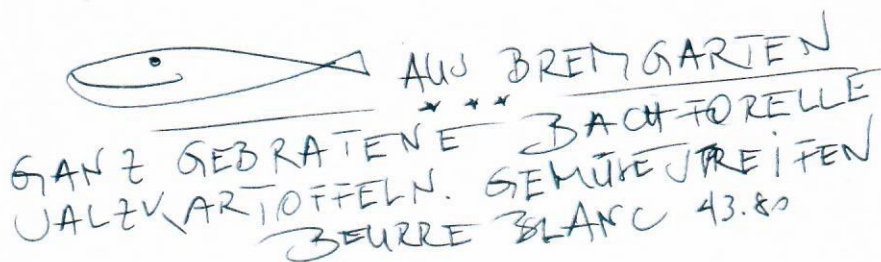 AUS BREMGARTEN
* * *
GANZ GEBRATENE BACHFORELLE
SALZKARTOFFELN. GEMÜSESTREIFEN
BEURRE BLANC 43.80